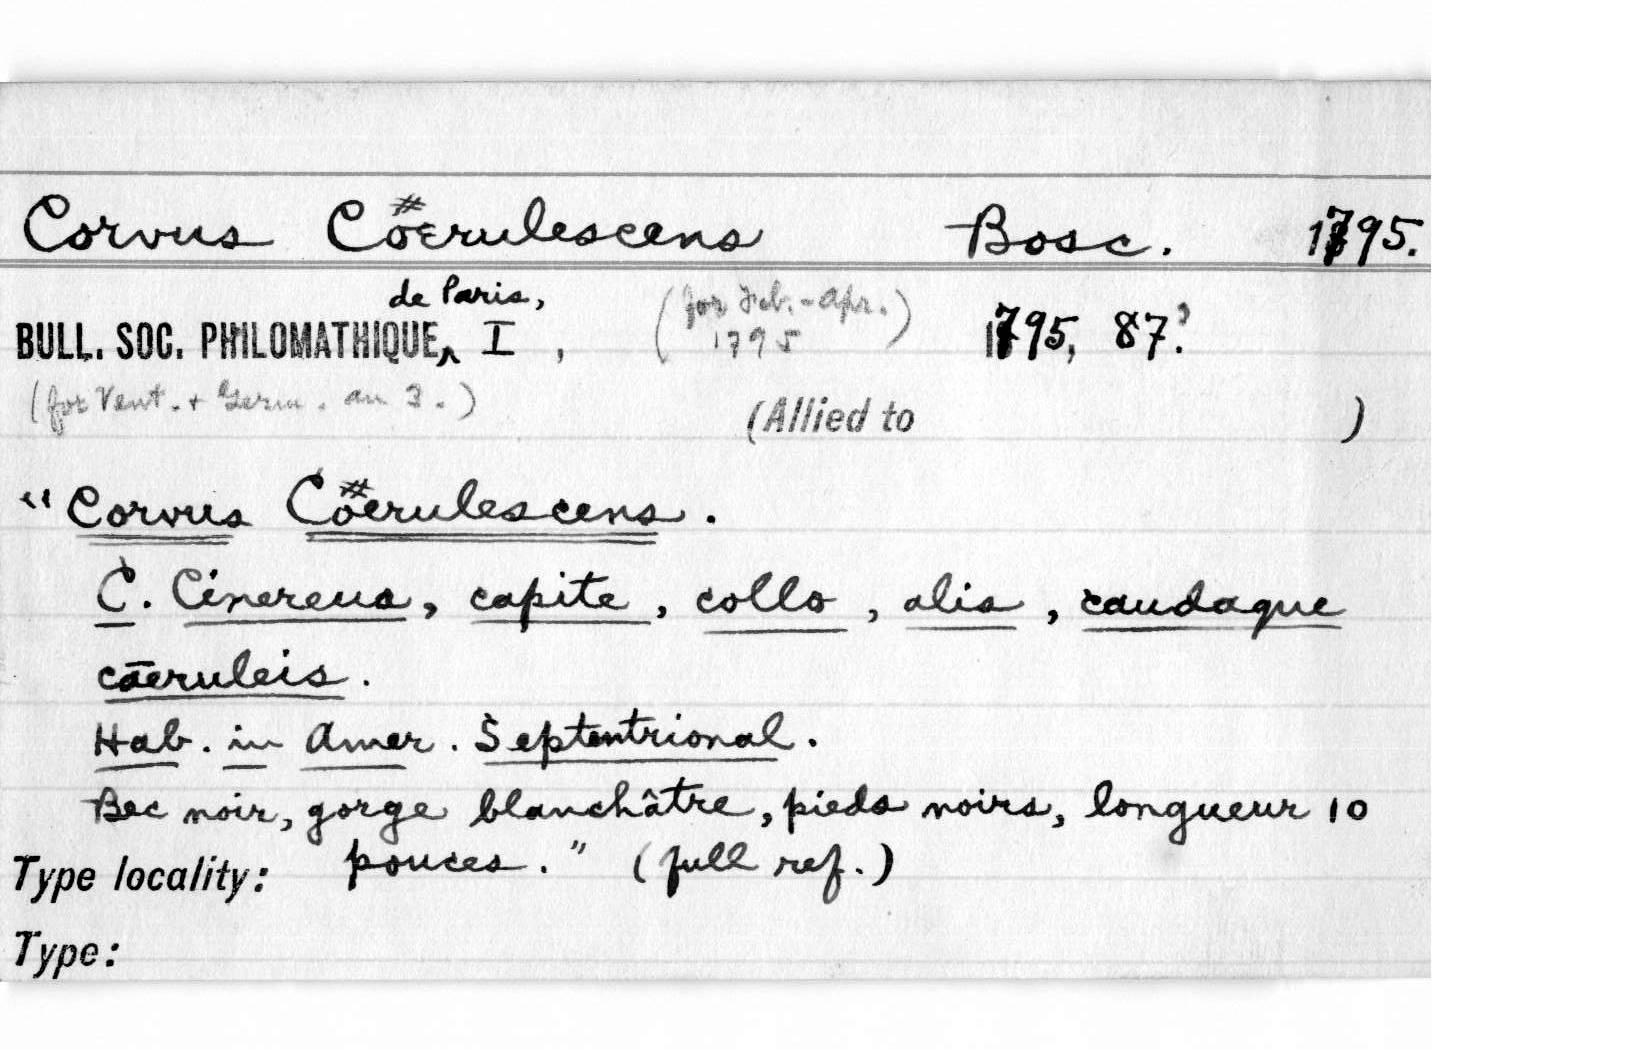 Corvus Cöerulescens Bosc. 1795.
de Paris,
BULL. SOC. PHILOMATHIQUE, I, (for Feb.-Apr. 1795) 1795, 87?
(for Vent. + Germ. an 3.)
(Allied to )
"Corvus Cöerulescens.
C. Cinereus, capite, collo, alis, caudaque
cāeruleis.
Hab. in Amer. Septentrional.
Bec noir, gorge blanchâtre, pieds noirs, longueur 10
pouces." (full ref.)
Type locality:
Type: